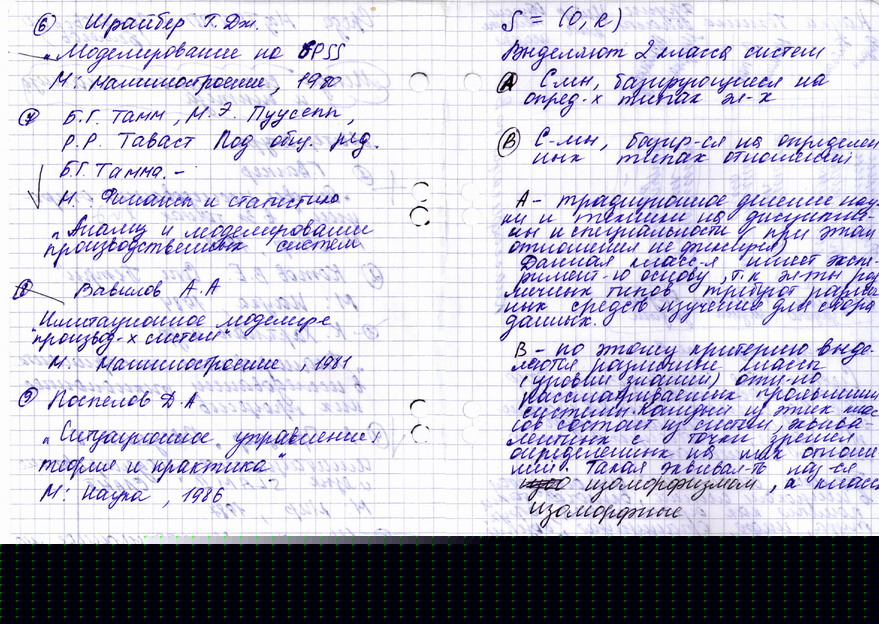 ⑥ Шрайбер Т. Дж.
„Моделирование на GPSS"
М: машиностроение, 1980
⑦ Б.Г. Тамм, М.Э. Пуусепп,
Р.Р. Таваст Под общ. ред.
Б.Г. Тамма. –
М.: Финансы и статистика
„Анализ и моделирование
производственных систем
⑧ Вавилов А.А
"Имитационное моделир-е
производ-х систем"
М. Машиностроение, 1981
⑨ Поспелов Д.А
„Ситуационное управление;
теория и практика"
М: Наука, 1986
S = (O, R)
Выделяют 2 класса систем
Ⓐ С-мы, базирующиеся на
опред-х типах эл-х
Ⓑ С-мы, базир-ся на определен
ных типах отношений
А – традиционное деление нау-
ки и техники на дисципли-
ны и специальности (при этом
отношения не фиксир)
Данная класс-я имеет экспе-
римент-ю основу, т.к эл-ты раз
личных типов требуют разли
ных средств изучения для сбора
данных.
В – по этому критерию выде-
ляются различные классы
(уровни знаний) отн-но
рассматриваемых проявлений
системы. Каждый из этих клас
сов состоит из систем, эквива-
лентных с точки зрения
определенных на них отноше
ний. Такая эквивал-ть наз-ся
изоморфизмом, а класс
изоморфные